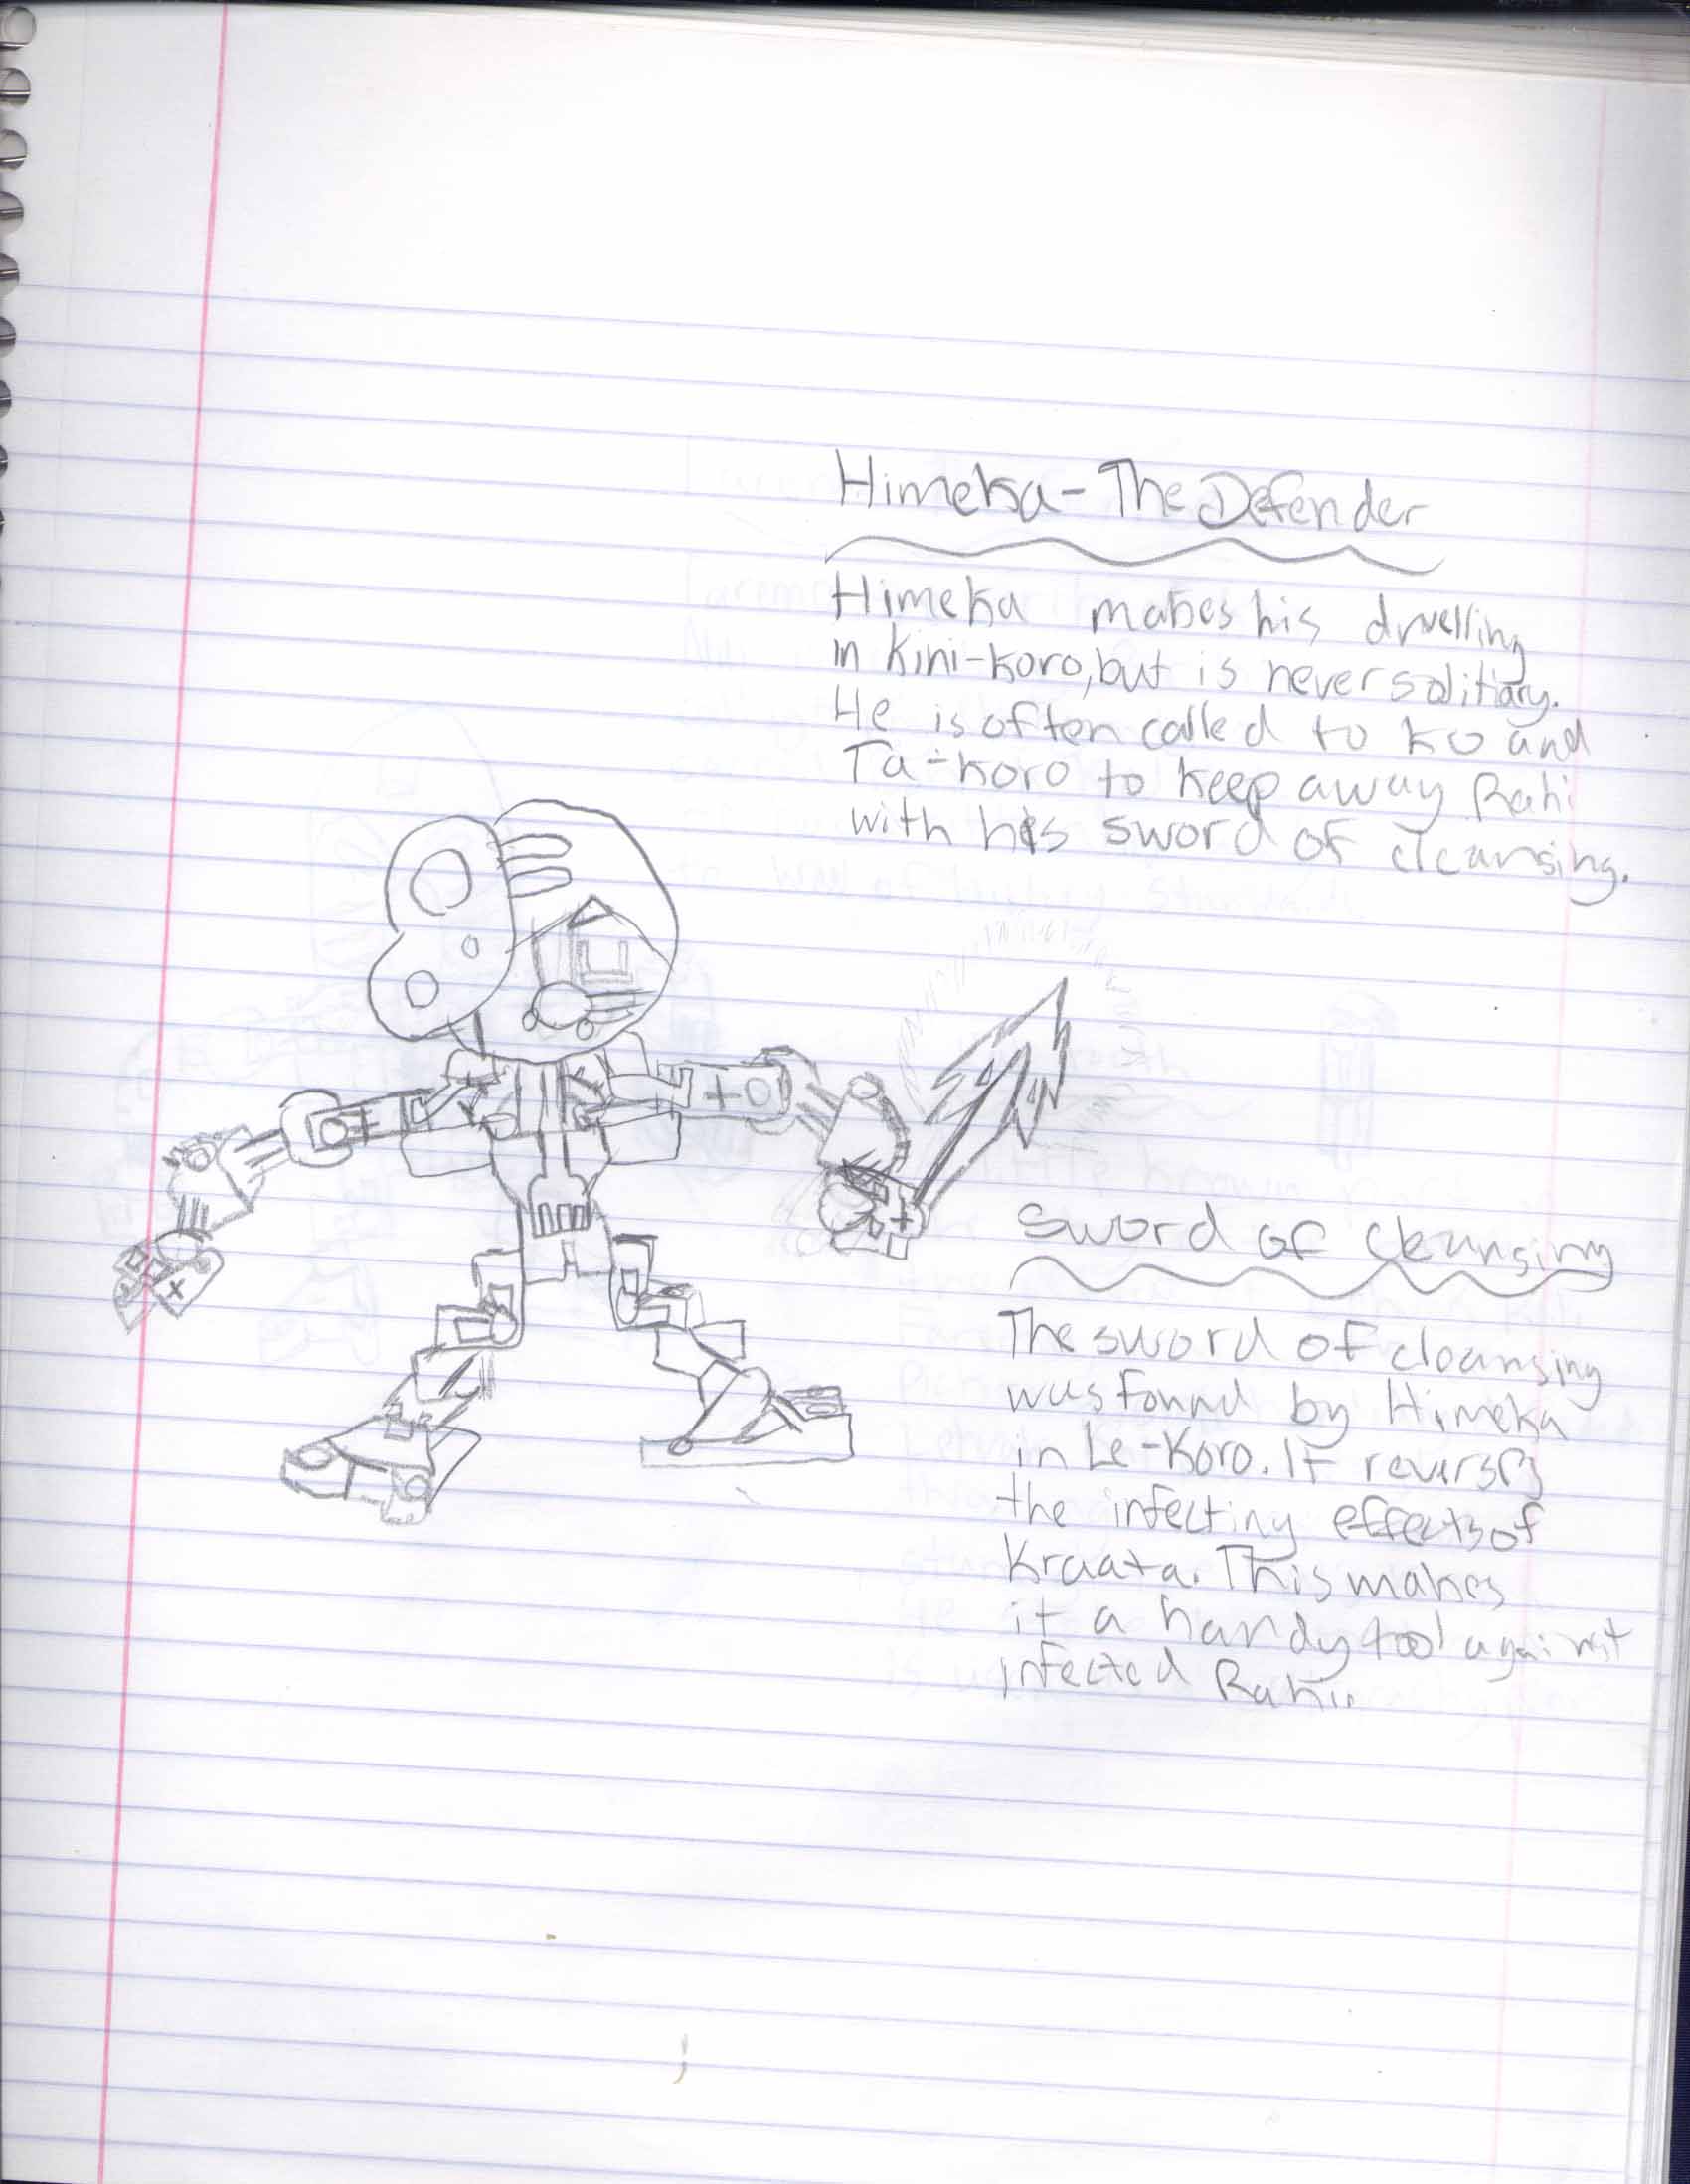 Himeka - The Defender
Himeka makes his dwelling
in Kini-koro, but is never solitiary.
He is often called to Ko and
Ta-koro to keep away Rahi
with his sword of cleansing.
Sword of Cleansing
The sword of cleansing
was found by Himeka
in Le-Koro. It reverses
the infecting effects of
Kraata. This makes
it a handy tool against
infected Rahi.